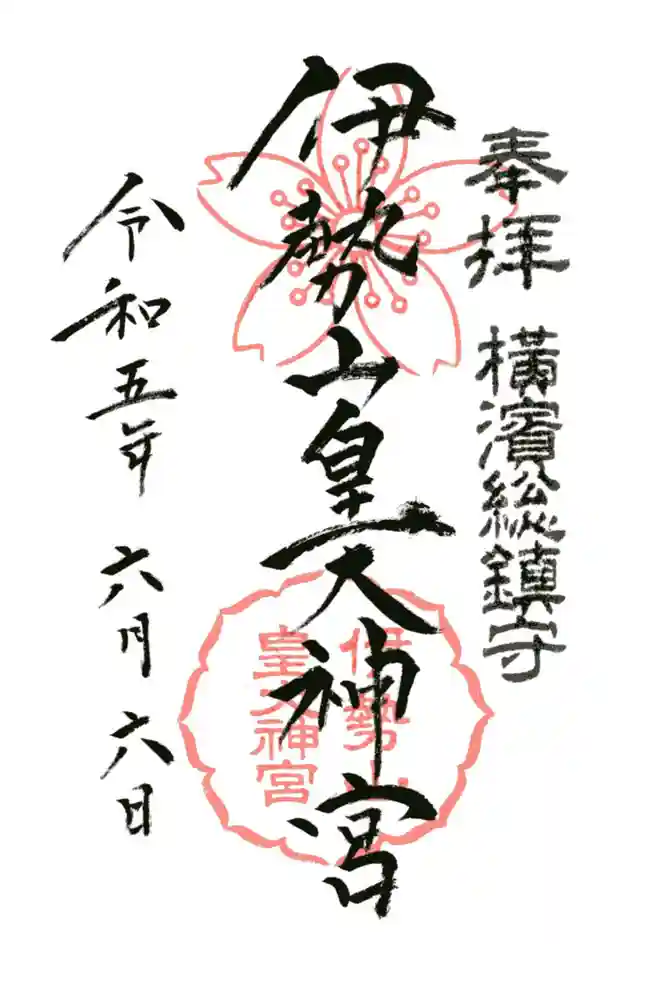 奉拝
横濱総鎮守
伊勢山皇大神宮
伊勢山
皇大神宮
令和五年
六月六日